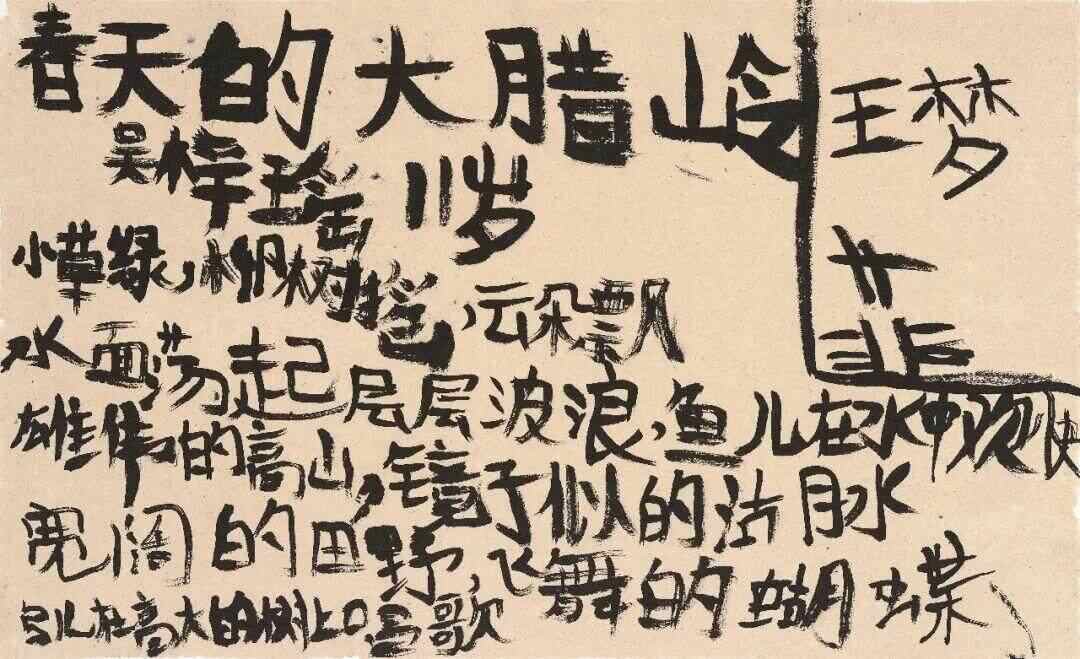 春天的大腊岭
王梦
菲
吴梓瑶 11岁
小草绿,柳树,云朵飘
水面荡起层层波浪,鱼儿在水中快
雄伟的高山,镜子似的湖水
宽阔的田野,飞舞的蝴蝶、
鸟儿在高大的树上唱歌